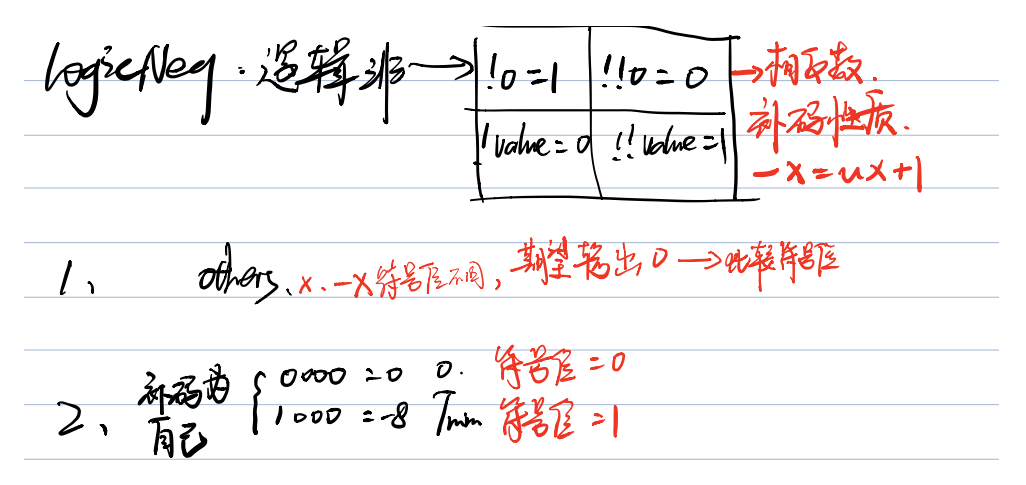 logicNeg:逻辑非→ !0=1 !!0=0 →相反数.
!value=0 !!value=1 补码性质.
-x=~x+1
1、 others、x、-x符号位不同,期望输出0→比较符号位
2、补码为自己 { 0000=0 0. 符号位=0
1000=-8 Tmin 符号位=1